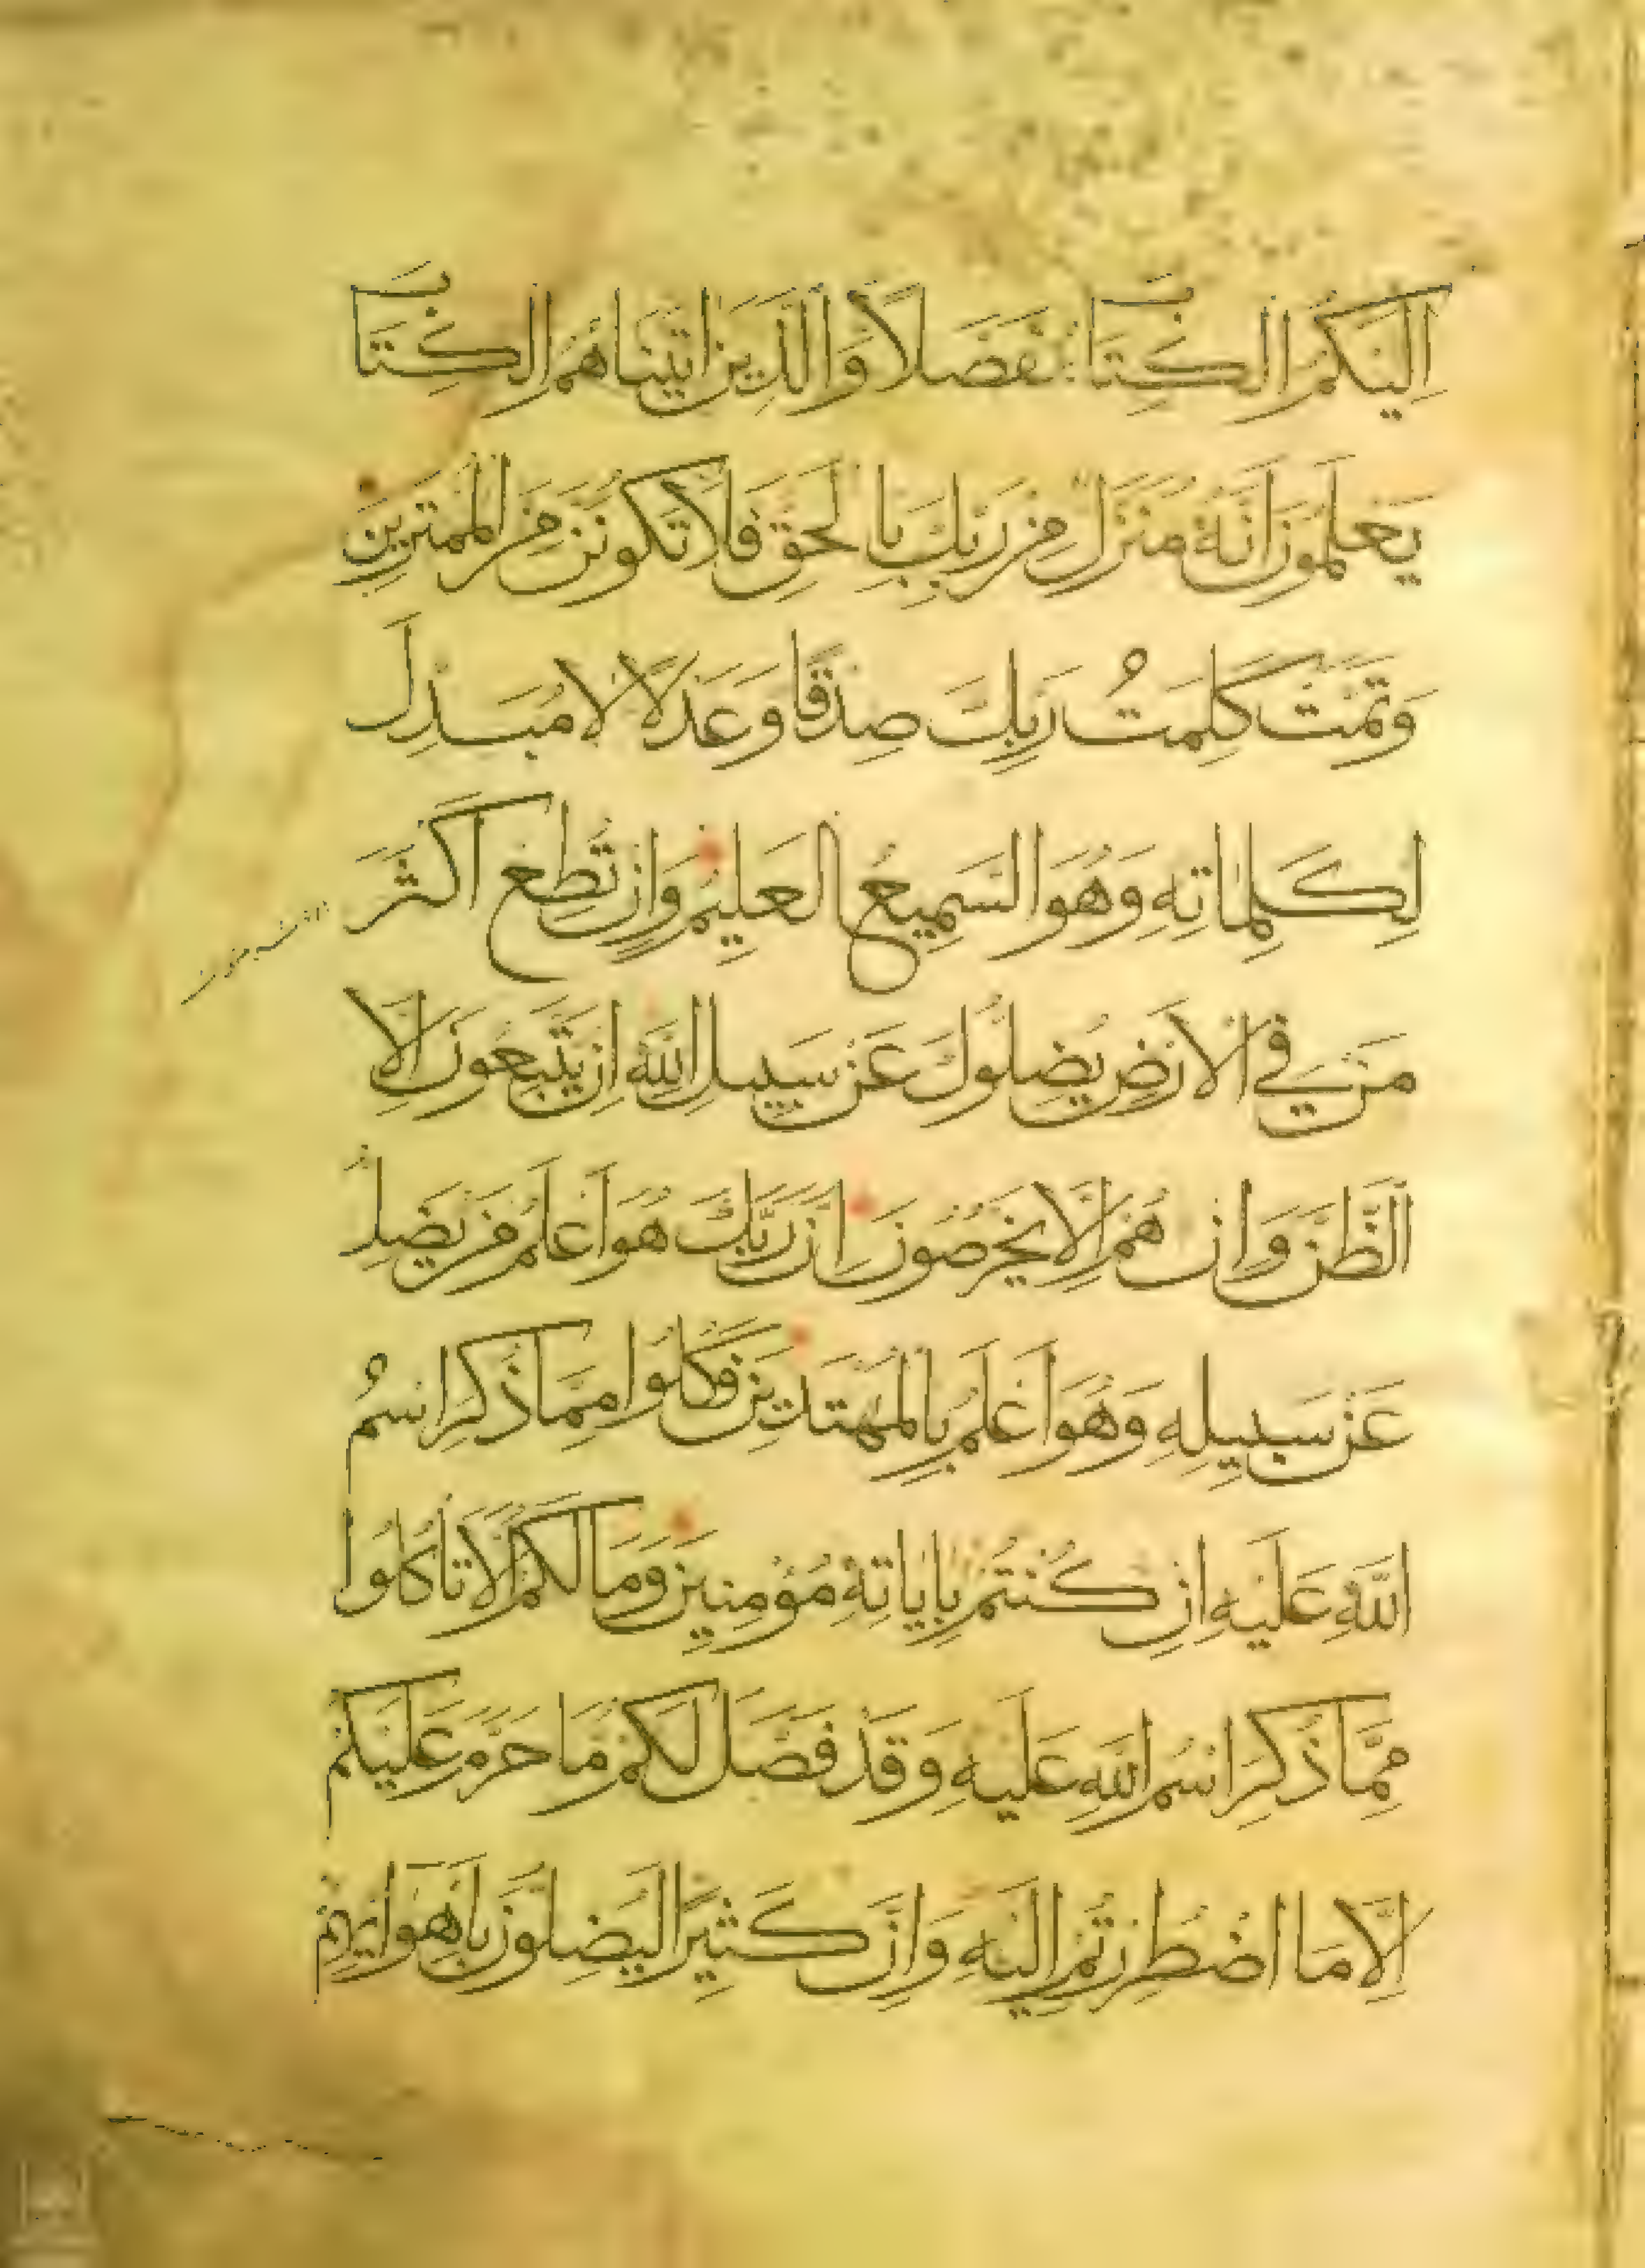 اِلَيْكُمُ الْكِتَابَ مُفَصَّلًا وَالَّذِينَ اٰتَيْنَاهُمُ الْكِتَابَ
يَعْلَمُونَ اَنَّهُ مُنَزَّلٌ مِنْ رَبِّكَ بِالْحَقِّ فَلَا تَكُونَنَّ مِنَ الْمُمْتَرِينَ
وَتَمَّتْ كَلِمَتُ رَبِّكَ صِدْقًا وَعَدْلًا لَا مُبَدِّلَ
لِكَلِمَاتِهِ وَهُوَ السَّمِيعُ الْعَلِيمُ وَاِنْ تُطِعْ اَكْثَرَ
مَنْ فِي الْاَرْضِ يُضِلُّوكَ عَنْ سَبِيلِ اللّٰهِ اِنْ يَتَّبِعُونَ اِلَّا
الظَّنَّ وَاِنْ هُمْ اِلَّا يَخْرُصُونَ اِنَّ رَبَّكَ هُوَ اَعْلَمُ مَنْ يَضِلُّ
عَنْ سَبِيلِهِ وَهُوَ اَعْلَمُ بِالْمُهْتَدِينَ فَكُلُوا مِمَّا ذُكِرَ اسْمُ
اللّٰهِ عَلَيْهِ اِنْ كُنْتُمْ بِاٰيَاتِهِ مُؤْمِنِينَ وَمَا لَكُمْ اَلَّا تَأْكُلُوا
مِمَّا ذُكِرَ اسْمُ اللّٰهِ عَلَيْهِ وَقَدْ فَصَّلَ لَكُمْ مَا حَرَّمَ عَلَيْكُمْ
اِلَّا مَا اضْطُرِرْتُمْ اِلَيْهِ وَاِنَّ كَثِيرًا لَيُضِلُّونَ بِاَهْوَائِهِمْ